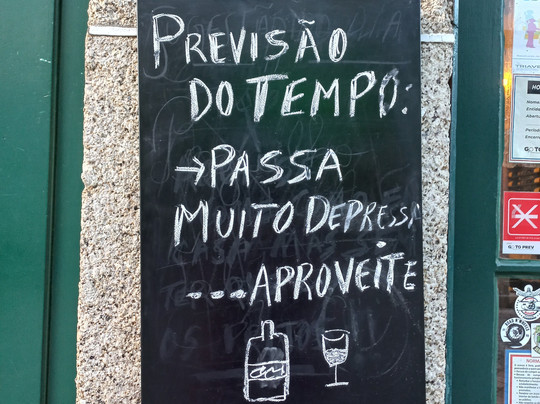 PREVISÃO
DO TEMPO:
→PASSA
MUITO DEPRESSA
...APROVEITE
GO TO PREV